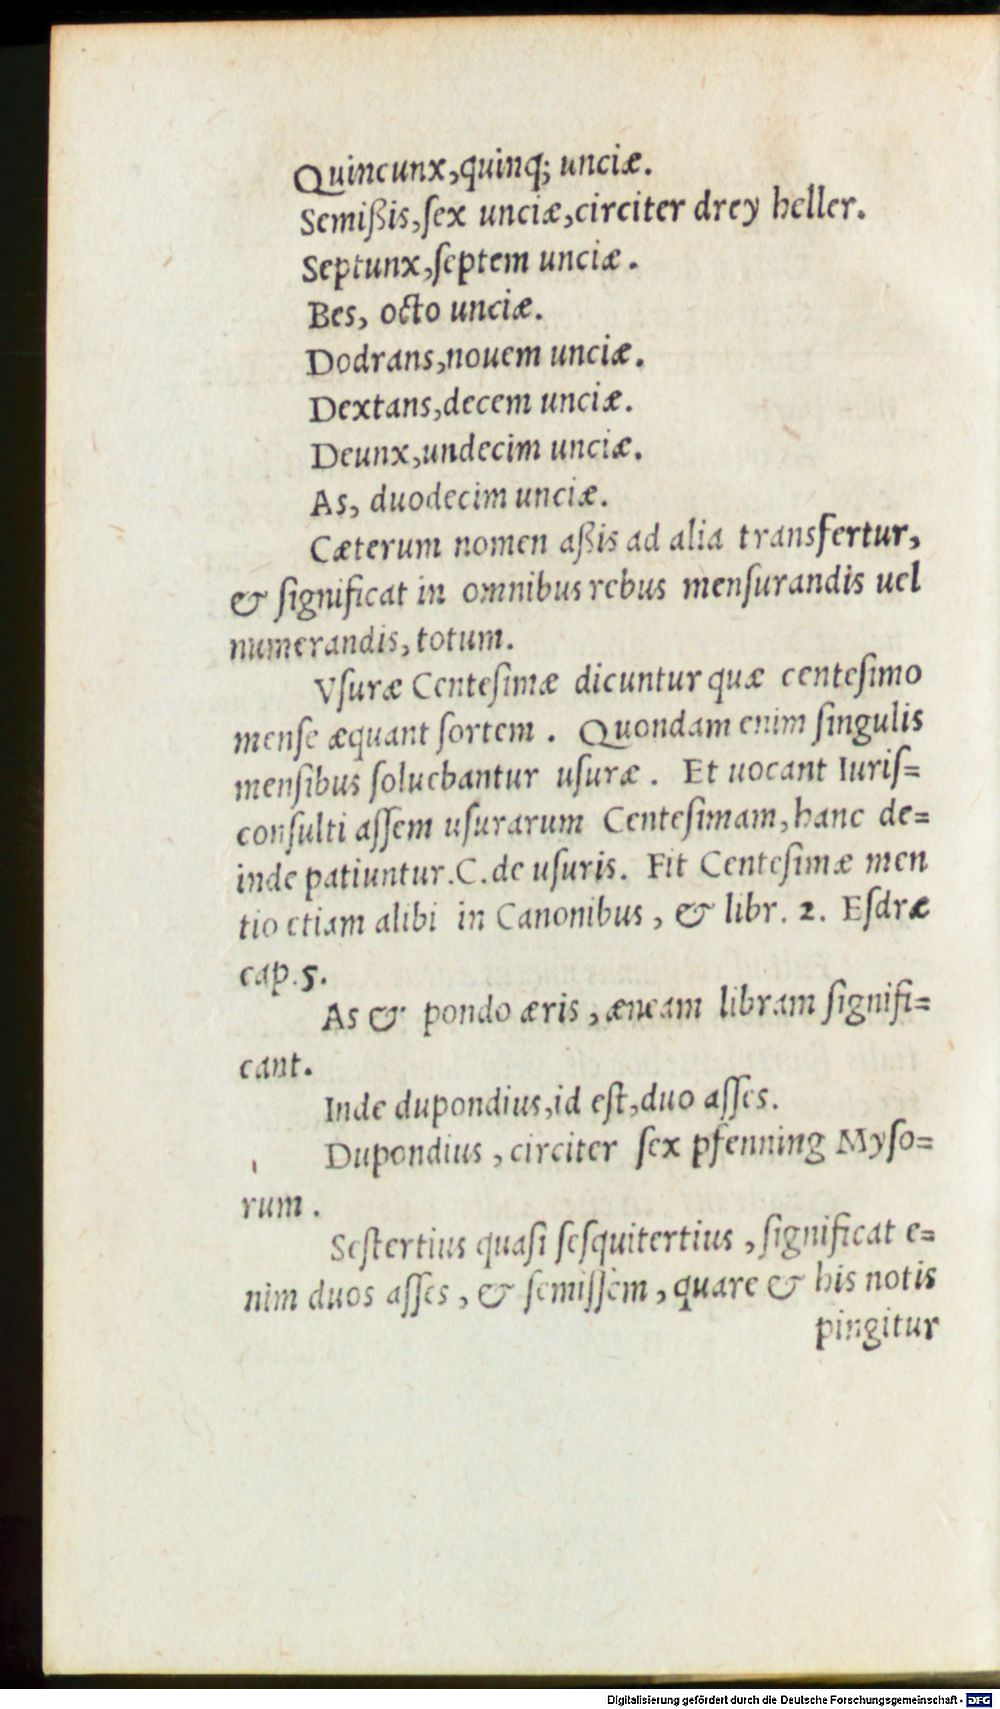 Quincunx, quinq; unciæ.
Semißis, ſex unciæ, circiter drey heller.
Septunx, ſeptem unciæ.
Bes, octo unciæ.
Dodrans, nouem unciæ.
Dextans, decem unciæ.
Deunx, undecim unciæ.
As, duodecim unciæ.
Cæterum nomen aßis ad alia transfertur,
& ſignificat in omnibus rebus menſurandis uel
numerandis, totum.
Vſuræ Centeſimæ dicuntur quæ centeſimo
menſe æquant ſortem. Quondam enim ſingulis
menſibus ſoluebantur uſuræ. Et uocant Iuriſ=
conſulti aſſem uſurarum Centeſimam, hanc de=
inde patiuntur. C. de uſuris. Fit Centeſimæ men
tio etiam alibi in Canonibus, & libr. 2. Eſdræ
cap. 5.
As & pondo æris, æneam libram ſignifi=
cant.
Inde dupondius, id eſt, duo aſſes.
Dupondius, circiter ſex pfenning Myſo=
rum.
Seſtertius quaſi ſeſquitertius, ſignificat e=
nim duos aſſes, & ſemiſſem, quare & his notis
pingitur
Digitalisierung gefördert durch die Deutsche Forschungsgemeinschaft - DFG